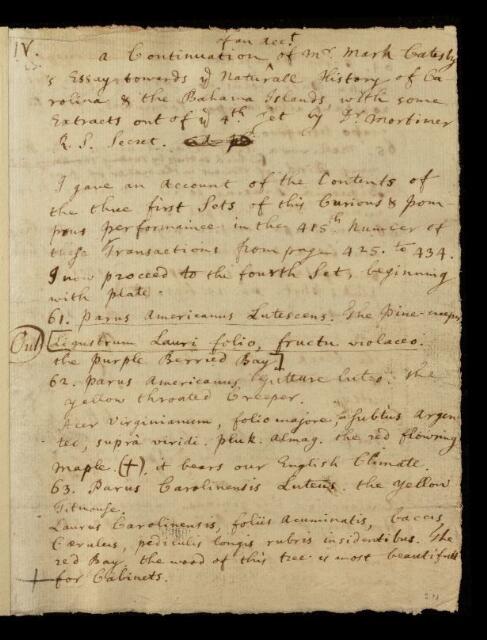 IV.
of an Acct.
a Continuation of Mr. Mark Catesby
's Essay towards ye Naturall History of Ca
rolina & the Bahama Islands, with some
Extracts out of ye 4th Set by Dr. Mortimer
R. S. Secret.
I gave an Account of the Contents of
the three first Sets of this Curious & pom-
pous performance in the 415th Number of
these Transactions from page 425. to 434.
I now proceed to the fourth Set, beginning
with plate.
61. Parus Americanus Lutescens. The Pine-creeper
Out [Ligustrum Lauri folio, fructu violaceo.
the purple Berried Bay.]
62. Parus Americanus, gutture luteo. the
yellow throated Creeper.
Acer Virginianum, folio majore, subtus argen
teo, suprà viridi. Pluk. Almag. the red flowring
Maple. (+) it bears our English Climate.
63. Parus Carolinensis Luteus. the yellow
Titmouse.
Laurus Carolinensis, foliis acuminatis, baccis
Cæruleis, pediculis longis rubris insidentibus. The
red Bay. the wood of this tree is most beautifull
+ for Cabinets.